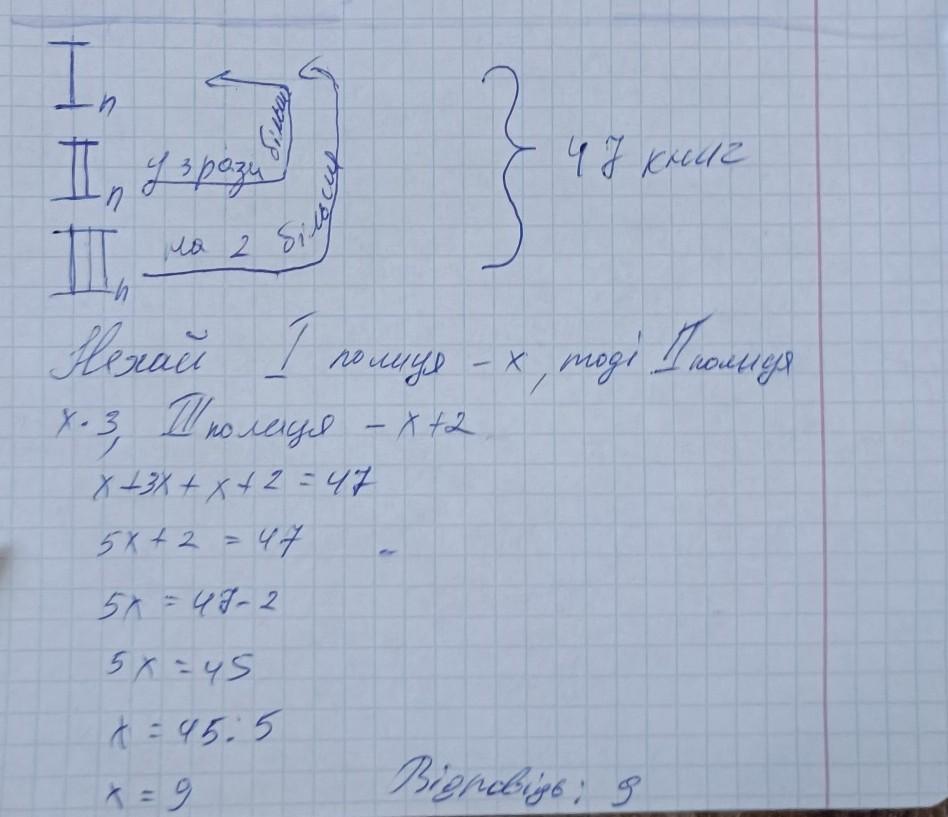 I п
II п у 3 рази більше
III п на 2 більше
47 книг
Нехай I полиця - x, тоді II полиця
x · 3, III полиця - x + 2
x + 3x + x + 2 = 47
5x + 2 = 47
5x = 47 - 2
5x = 45
x = 45 : 5
x = 9
Відповідь: 9